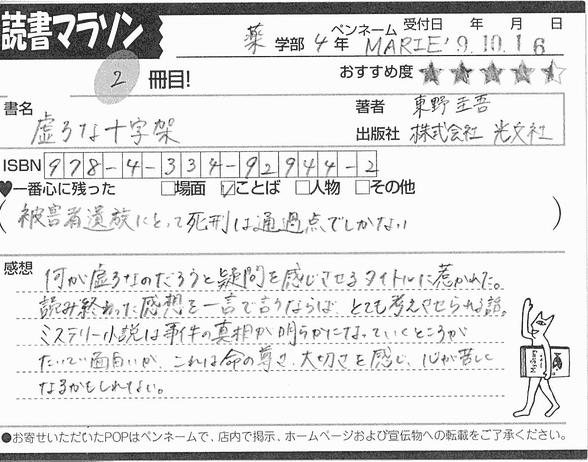 読書マラソン
薬 学部 4 年 ペンネーム MARIE' 受付日 年 月 日 9.10.16
2 冊目!
おすすめ度 ★★★★★
書名 虚ろな十字架
著者 東野圭吾
出版社 株式会社 光文社
ISBN 978-4-334-92944-2
♥一番心に残った □場面 ☑ことば □人物 □その他
(被害者遺族にとって死刑は通過点でしかない)
感想
何が虚ろなのだろうと疑問を感じさせるタイトルに惹かれた。
読み終わった感想を一言で言うならば、とても考えさせられる話。
ミステリー小説は事件の真相が明らかになっていくところが
たいてい面白いが、これは命の尊さ、大切さを感じ、心が苦しく
なるかもしれない。
●お寄せいただいたPOPはペンネームで、店内で掲示、ホームページおよび宣伝物への転載をご了承ください。